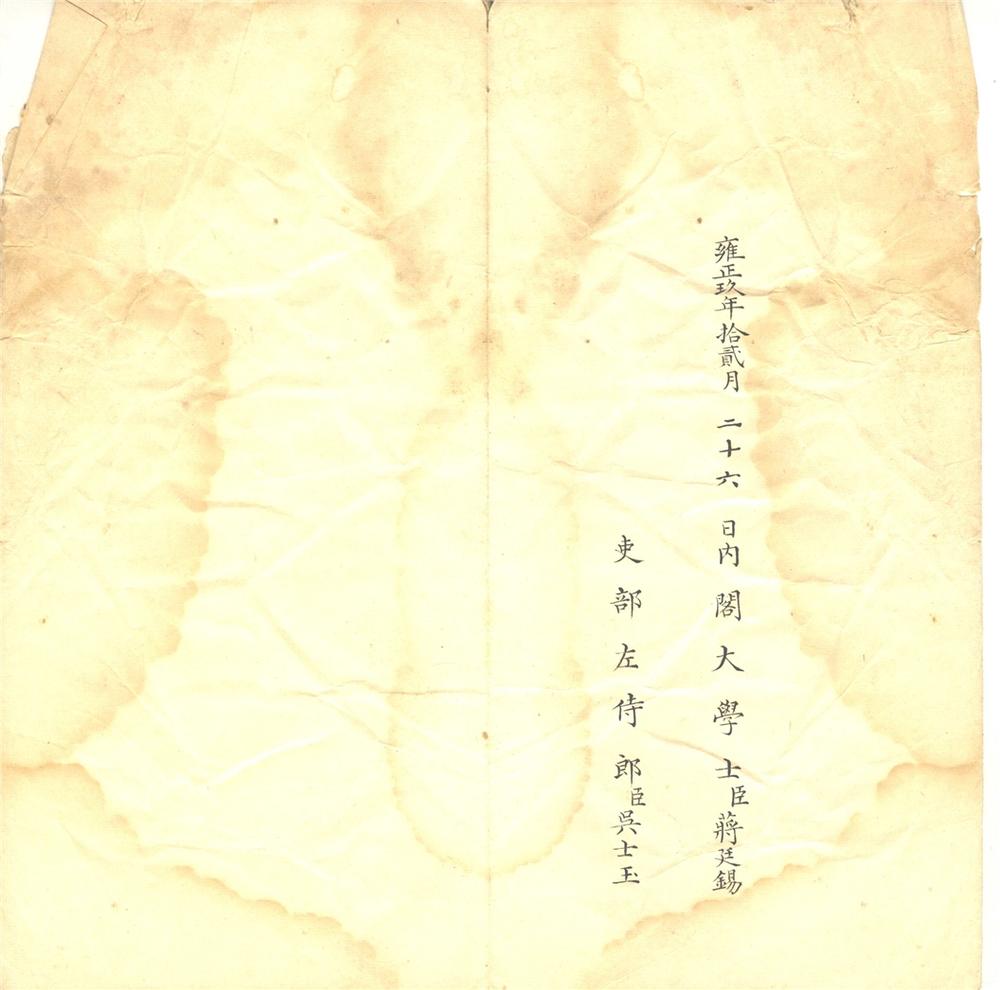 雍正玖年拾貳月 二十六 日内閣大學士臣蔣廷錫
吏部左侍郎臣吳士玉